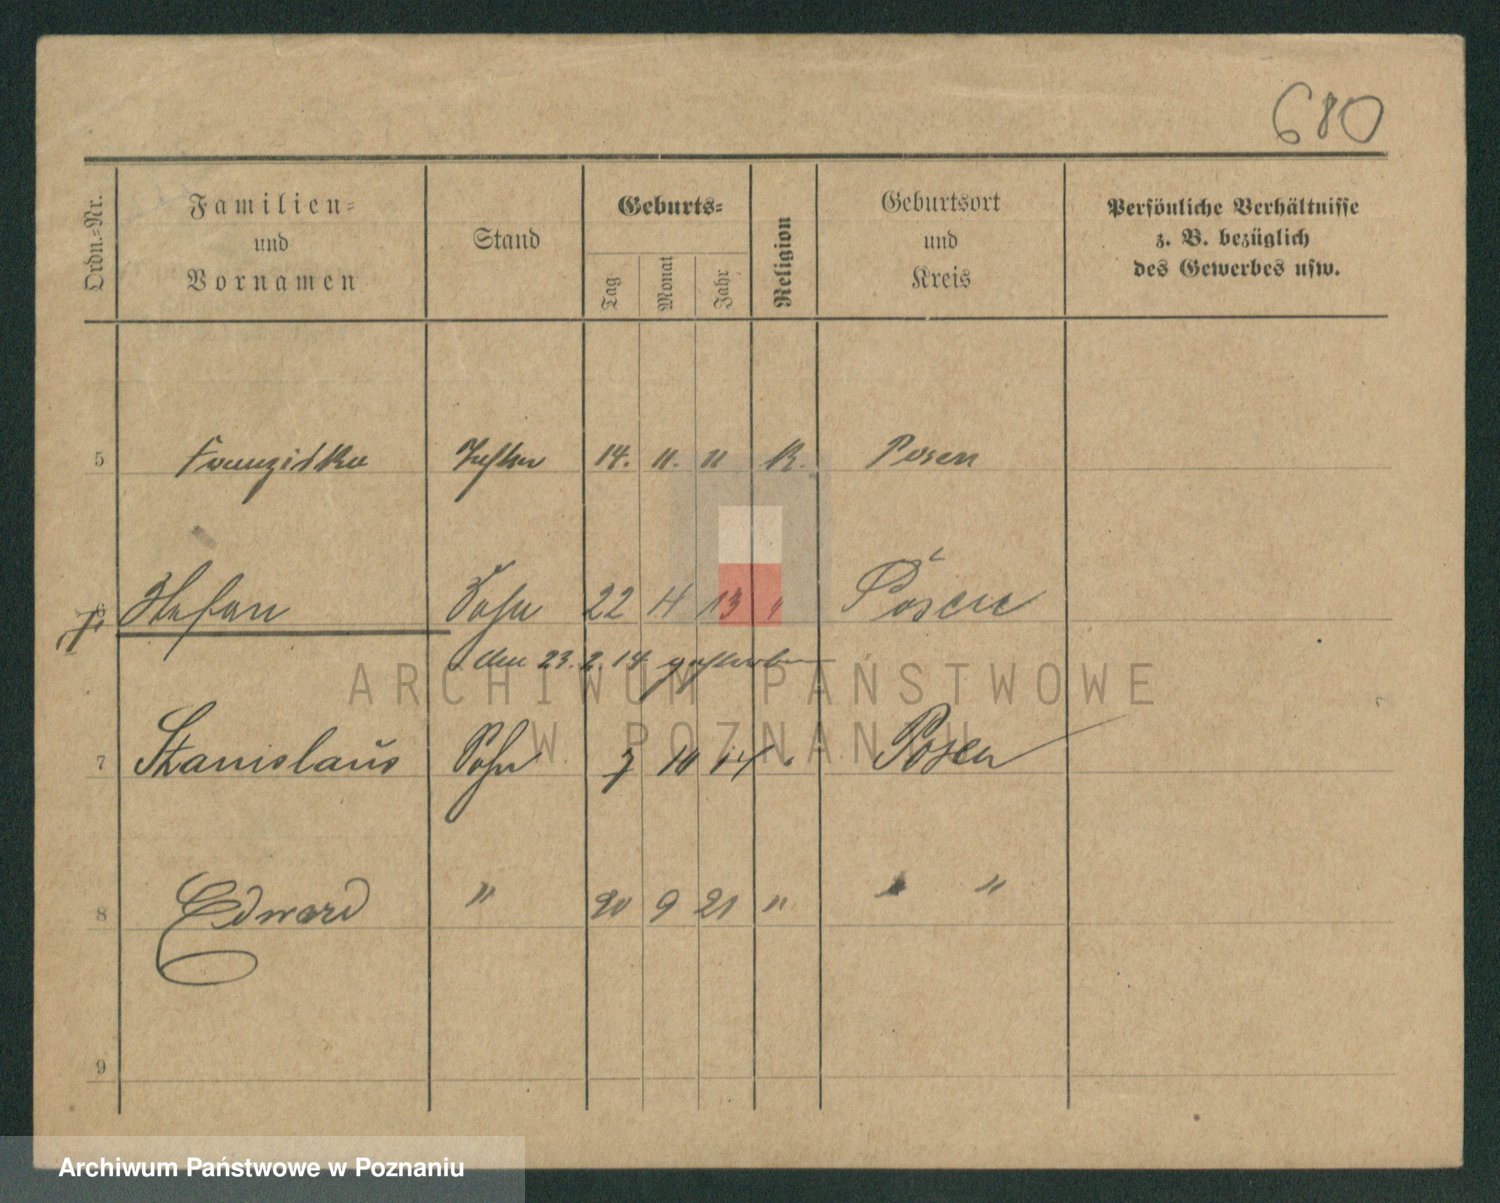 680
Ordn.-Nr.
Familien-
und
Vornamen
Stand
Geburts-
Tag
Monat
Jahr
Religion
Geburtsort
und
Kreis
Persönliche Verhältnisse
z. B. bezüglich
des Gewerbes usw.
5 Franziska Tochter 14. 11. 11 K. Posen
6 Stefan Sohn 22 4 13 " Posen
den 23. 2. 14 gestorben
ARCHIWUM PAŃSTWOWE
W POZNANIU
7 Stanislaus Sohn 7 10 14 " Posen
8 Edward " 20 9 21 " " "
9
Archiwum Państwowe w Poznaniu